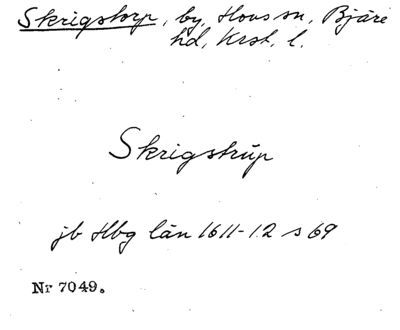 Skrigstorp, by, Hovs sn, Bjäre
hd, Krst. l.
Skrigstrup
jb Hbg län 1611-12 s 69
Nr 7049.